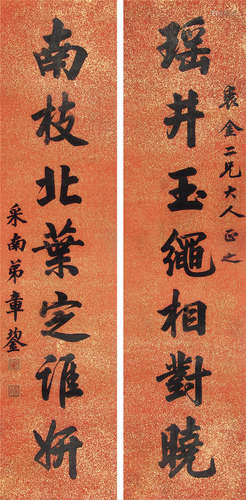 瑶井玉繩相對曉
袌金二兄大人正之
南枝北葉定誰妍
采南弟章鋆